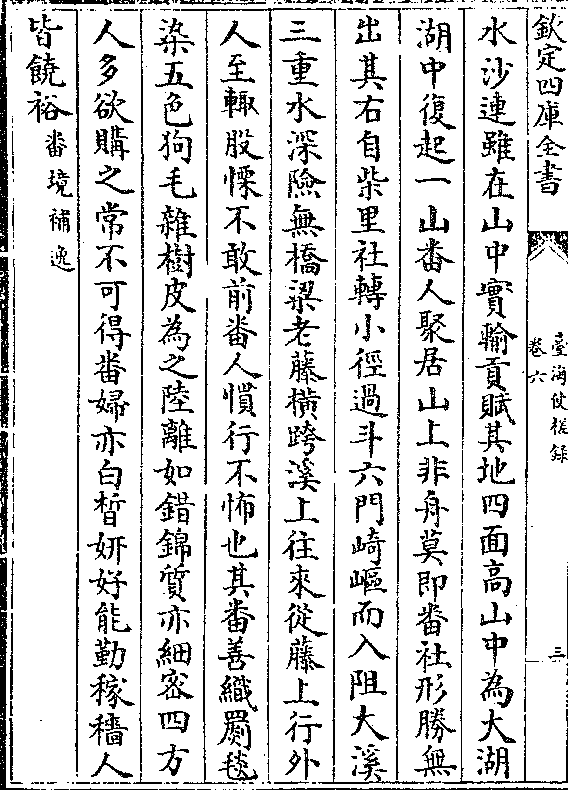 欽定四庫全書
臺海使槎錄
卷六
三
水沙連雖在山中實輸貢賦其地四面高山中為大湖
湖中復起一山番人聚居山上非舟莫即番社形勝無
出其右自柴里社轉小徑過斗六門崎嶇而入阻大溪
三重水深險無橋梁老藤橫跨溪上往來從藤上行外
人至輙股慄不敢前番人慣行不怖也其番善織罽毯
染五色狗毛雜樹皮為之陸離如錯錦質亦細密四方
人多欲購之常不可得番婦亦白晳妍好能勤稼穡人
皆饒裕番境補逸